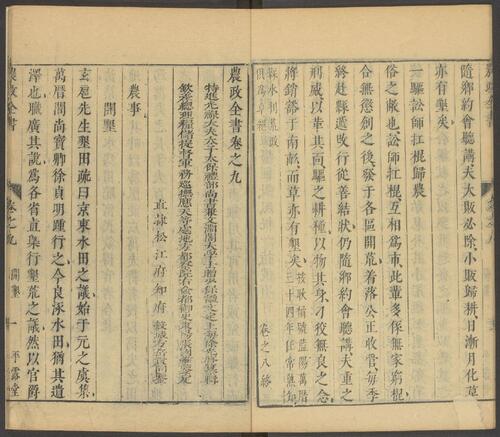 隨鄉約會聽講夫大敗必除小敗歸耕日漸月化草
亦有墾矣
一驅訟師扛棍歸農
俗之敝也訟師扛棍互相為市此輩多係無家窮棍
合無懲創之後發于各區開荒着落公正收管每季
將赴縣遞改行從善結狀仍隨鄉約會聽講夫重之
刑威以革其面驅之耕種以物其身刁狡無良之
將銷鎔于南畝而草亦有墾矣
三十四年任常熟知
縣水利荒政
俱為卓絕
卷之八終
農政全書卷之九
特進光祿大夫太子太保禮部尚書兼文淵閣大學士贈少保諡文定上海徐光啟纂輯
欽差總理糧儲提督軍務巡撫應天等處地方都察院右僉都御史東陽張國維鑒定
直隸松江府知府榖城方岳貢同鑒
農事
開墾
玄扈先生墾田疏曰京東水田之議始于元之虞集
萬曆間尚寶卿徐貞明踵行之今良涿水田猶其遺
澤也職廣其說為各省直槩行墾荒之議然以官爵
農政全書 卷之九 開墾 一 平露堂